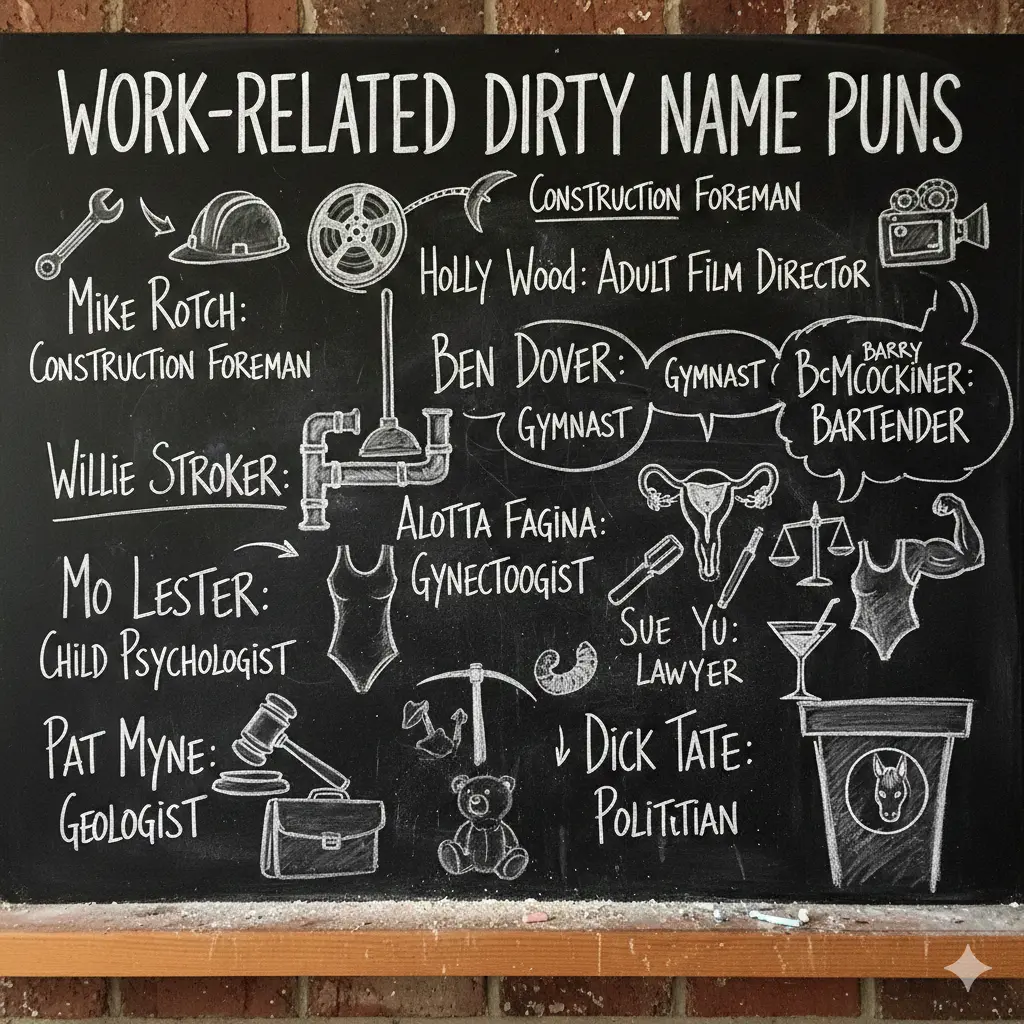 WORK-RELATED DIRTY NAME PUNS
CONSTRUCTION FOREMAN
HOLLY WOOD: ADULT FILM DIRECTOR
MIKE ROTCH:
CONSTRUCTION FOREMAN
BEN DOVER:
GYMNAST
GYMNAST
BARRY
BCMCOCKINER:
BARTENDER
WILLIE STROKER:
ALOTTA FAGINA:
GYNECTOOGIST
MO LESTER:
CHILD PSYCHOLOGIST
SUE YU:
LAWYER
PAT MYNE:
GEOLOGIST
DICK TATE:
POLITITIAN